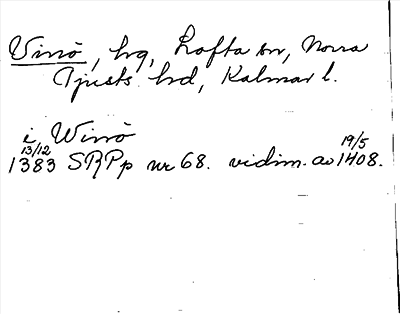 Vinö, hg, Lofta sn, Norra
Tjusts hd, Kalmar l.
i Winö
13/12 19/5
1383 SRPp nr 68. vidim. av 1408.